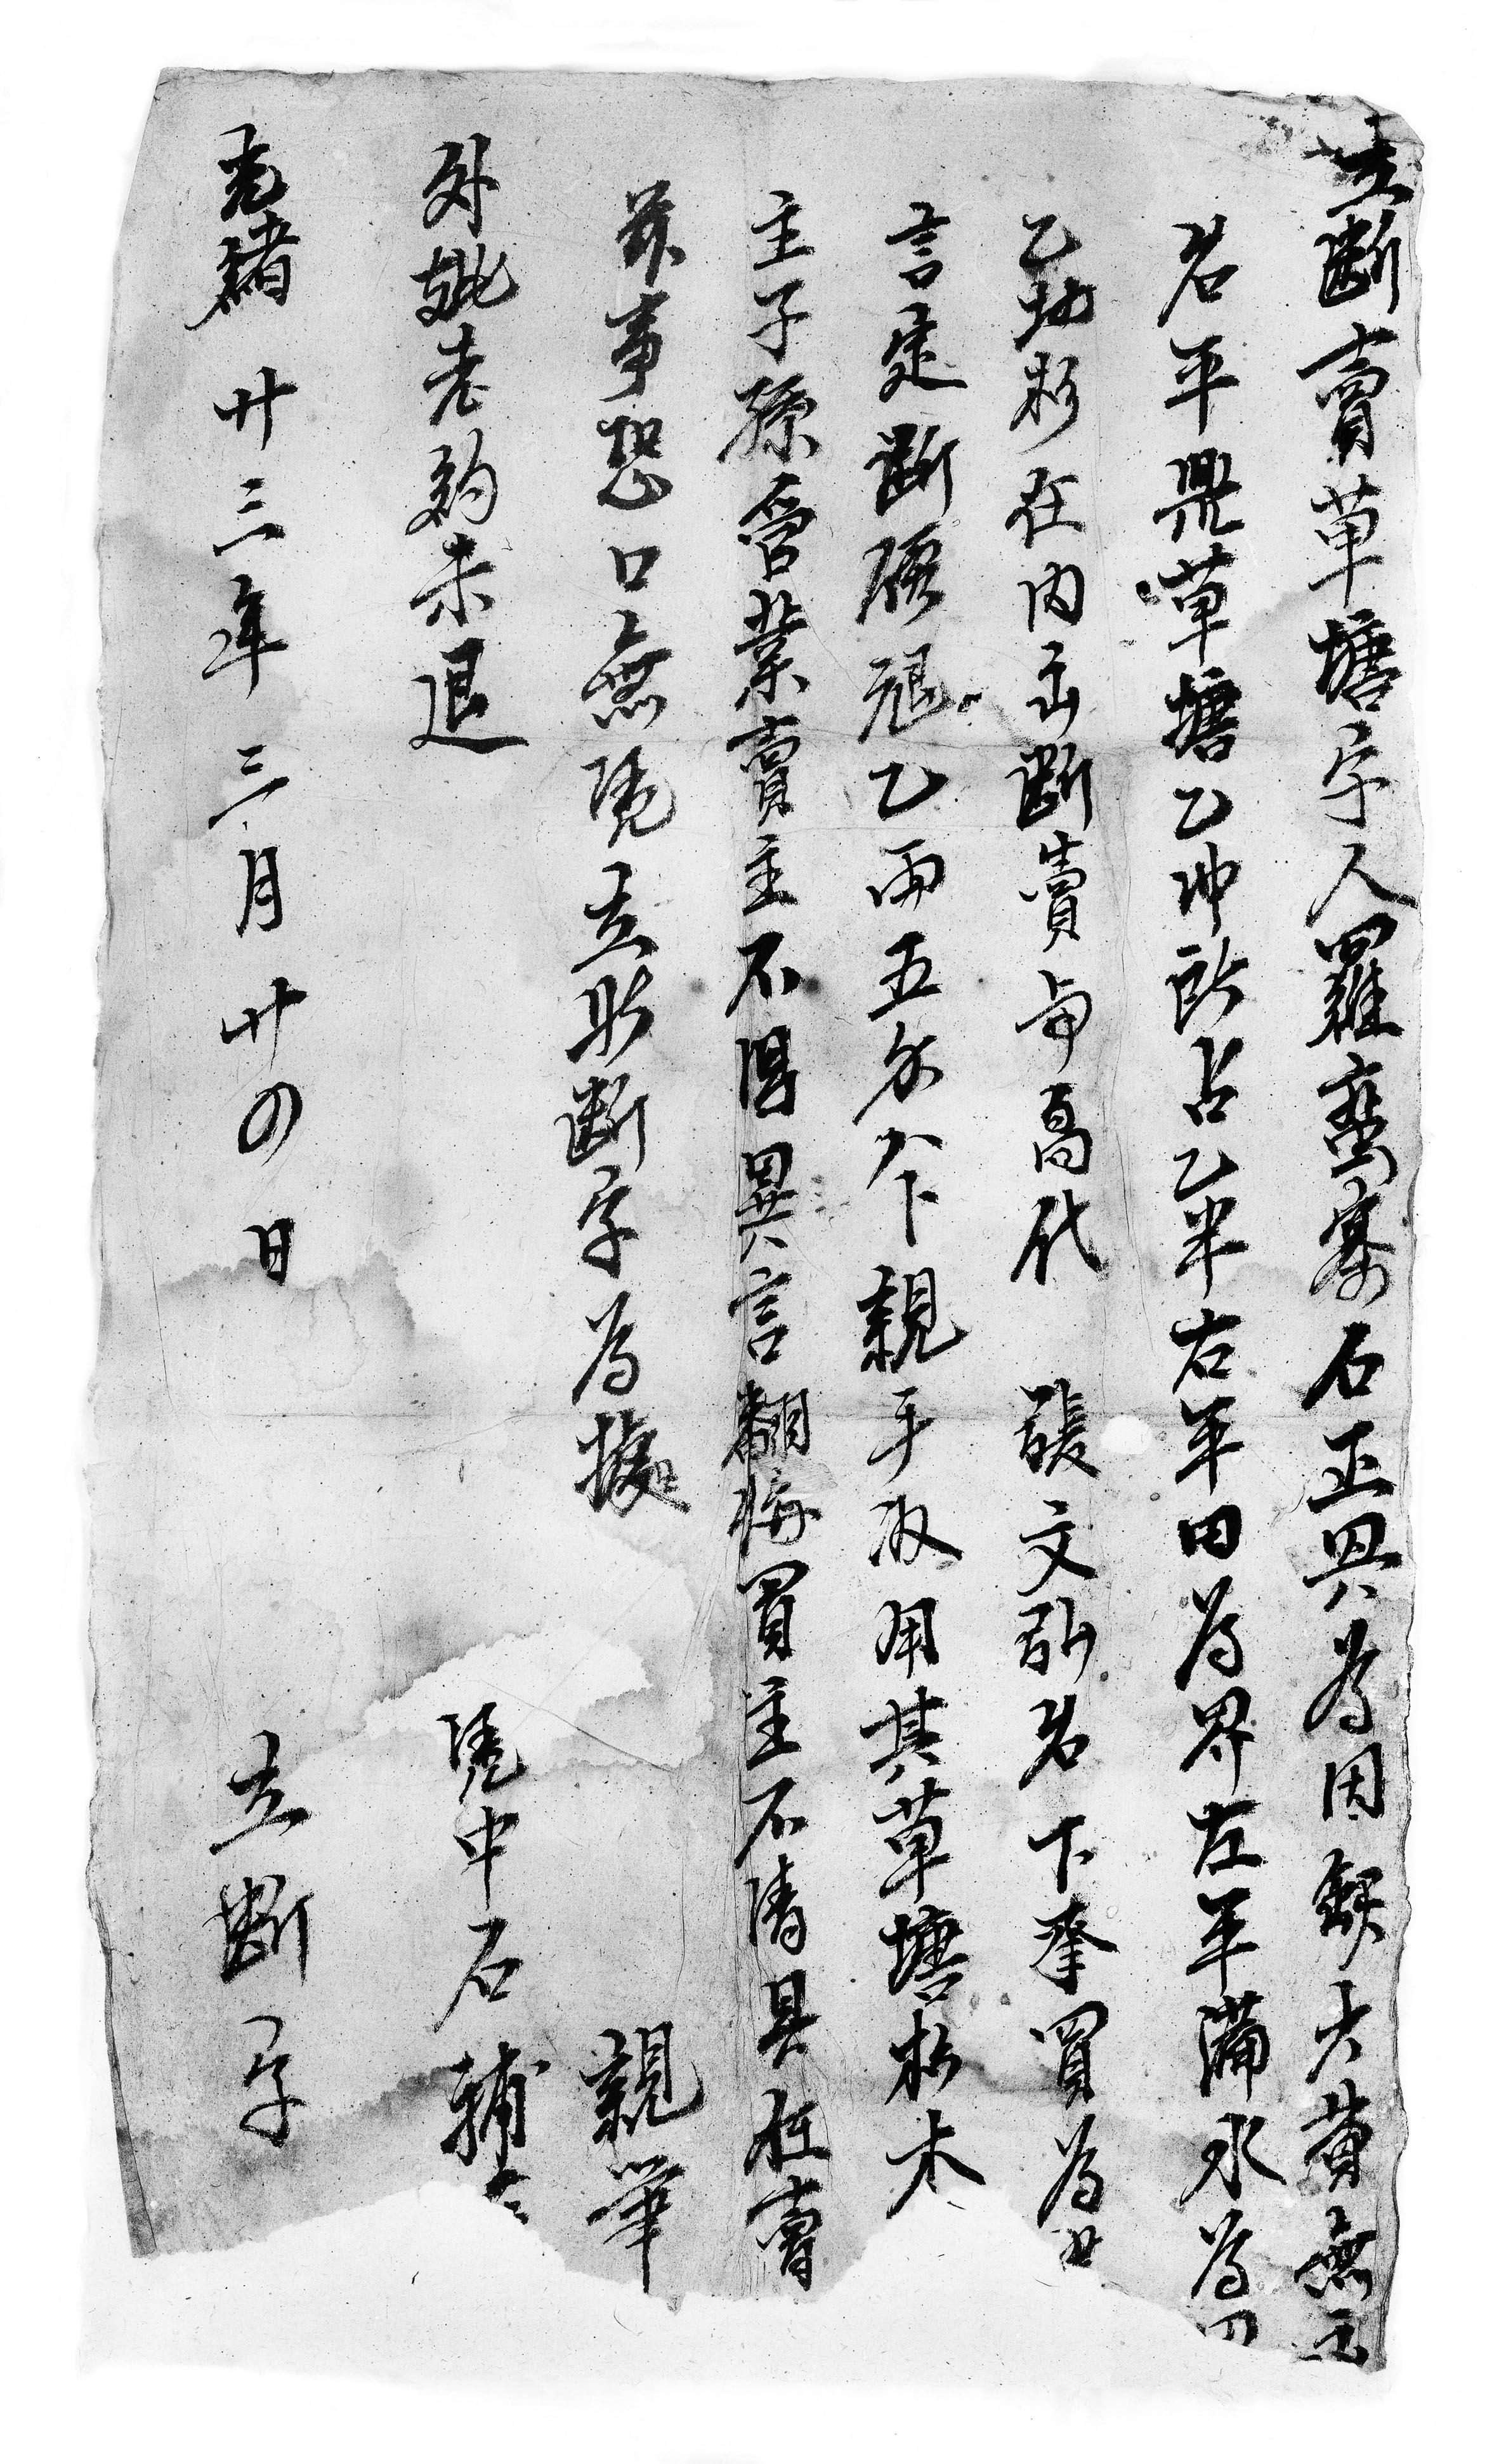 立斷賣草塘字人羅蛮寨石正興為因缺少費無
名平晃草塘乙冲所占乙半右平田為界左平溝水為
乙坳杉在内出斷賣与高代 張文礼名下承買為
言定斷價銀乙両五分八卞親手收用其草塘杉木
主子孫管業賣主不得異言翻悔買主不清具在賣
茲事恐口無凴立此斷字為據 親筆
外批老約未退 凴中石輔
光緒廿三年三月廿四日 立斷字